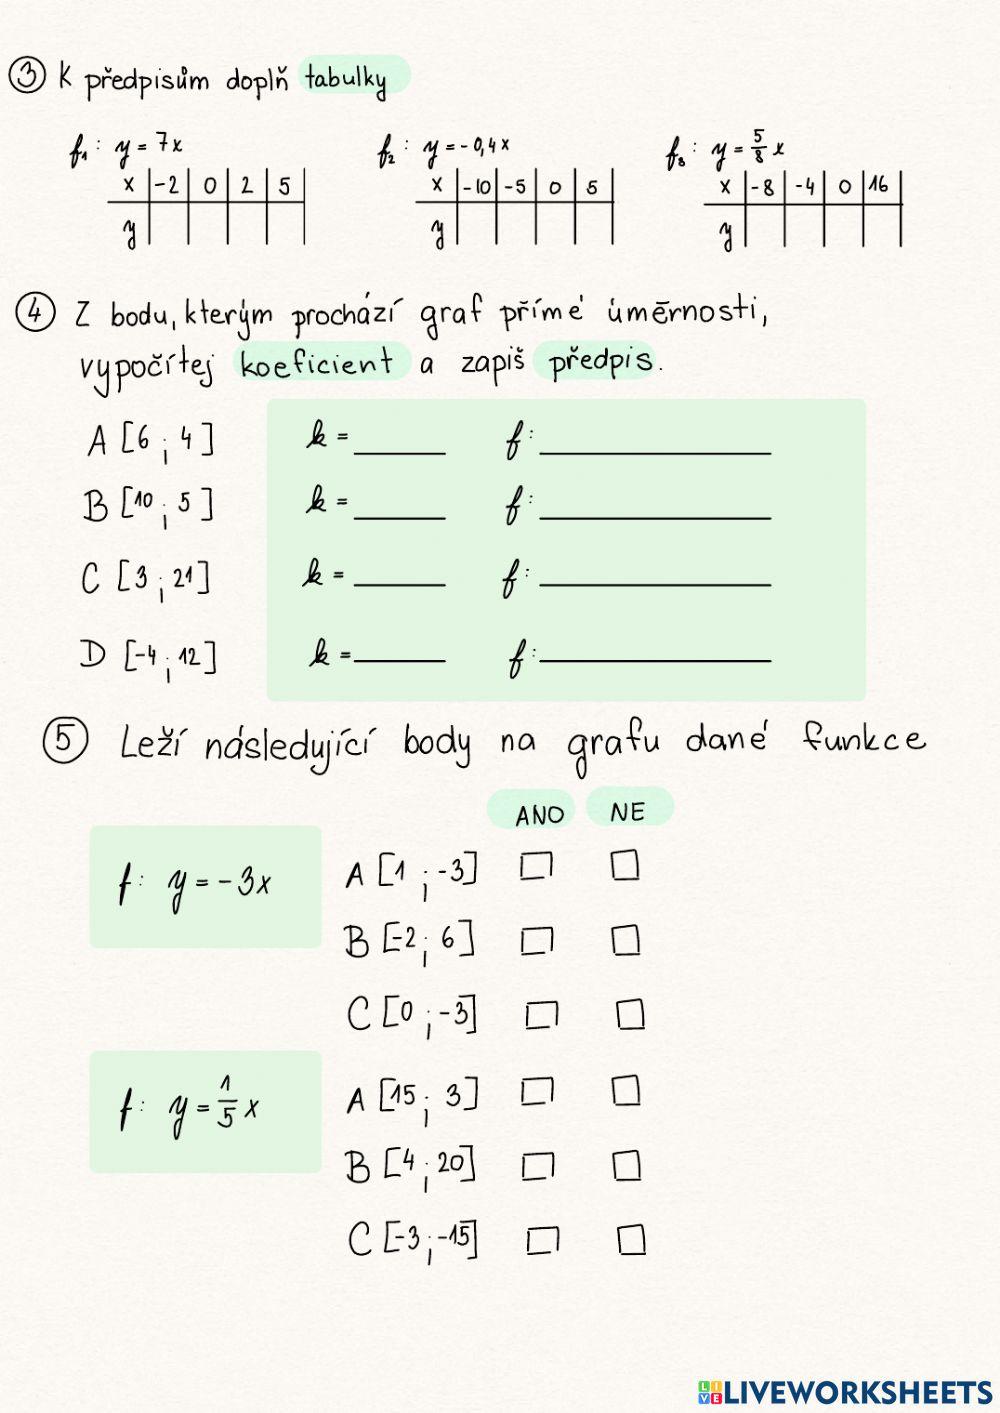 ③ K předpisům doplň tabulky
f₁: y = 7x f₂: y = -0,4x f₃: y = 5/8 x
x -2 0 2 5 x -10 -5 0 5 x -8 -4 0 16
y y y
④ Z bodu, kterým prochází graf přímé úměrnosti,
vypočítej koeficient a zapiš předpis.
A [6 ; 4] k = ______ f: ______
B [10 ; 5] k = ______ f: ______
C [3 ; 21] k = ______ f: ______
D [-4 ; 12] k = ______ f: ______
⑤ Leží následující body na grafu dané funkce
ANO NE
f: y = -3x A [1 ; -3]
B [-2 ; 6]
C [0 ; -3]
f: y = 1/5 x A [15 ; 3]
B [4 ; 20]
C [-3 ; -15]
LIVE LIVEWORKSHEETS